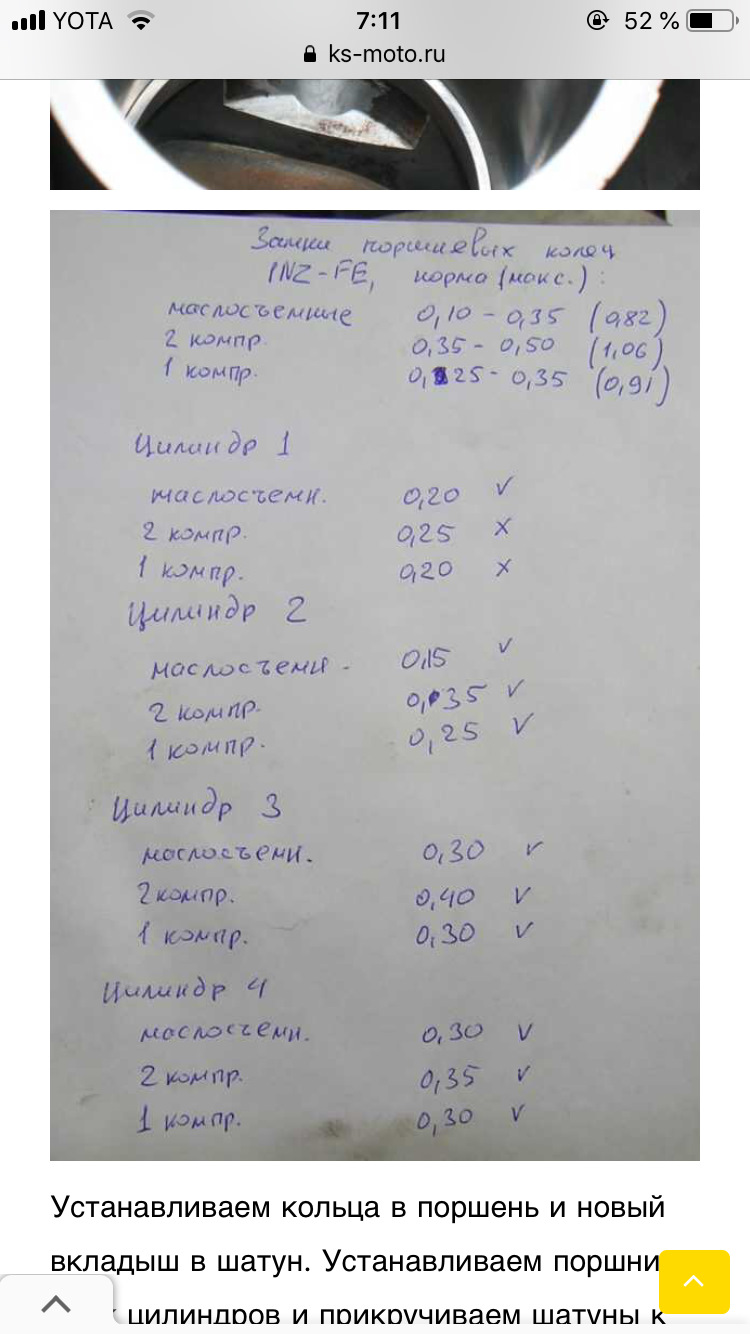 YOTA 7:11 52 %
ks-moto.ru
Замки поршневых колец
1NZ-FE, норма (макс.):
маслосъемные 0,10 - 0,35 (0,82)
2 компр. 0,35 - 0,50 (1,06)
1 компр. 0,25 - 0,35 (0,91)
Цилиндр 1
маслосъемн. 0,20 ✓
2 компр. 0,25 ×
1 компр. 0,20 ×
Цилиндр 2
маслосъемн. 0,15 ✓
2 компр. 0,35 ✓
1 компр. 0,25 ✓
Цилиндр 3
маслосъемн. 0,30 ✓
2 компр. 0,40 ✓
1 компр. 0,30 ✓
Цилиндр 4
маслосъемн. 0,30 ✓
2 компр. 0,35 ✓
1 компр. 0,30 ✓
Устанавливаем кольца в поршень и новый
вкладыш в шатун. Устанавливаем поршни
цилиндров и прикручиваем шатуны к